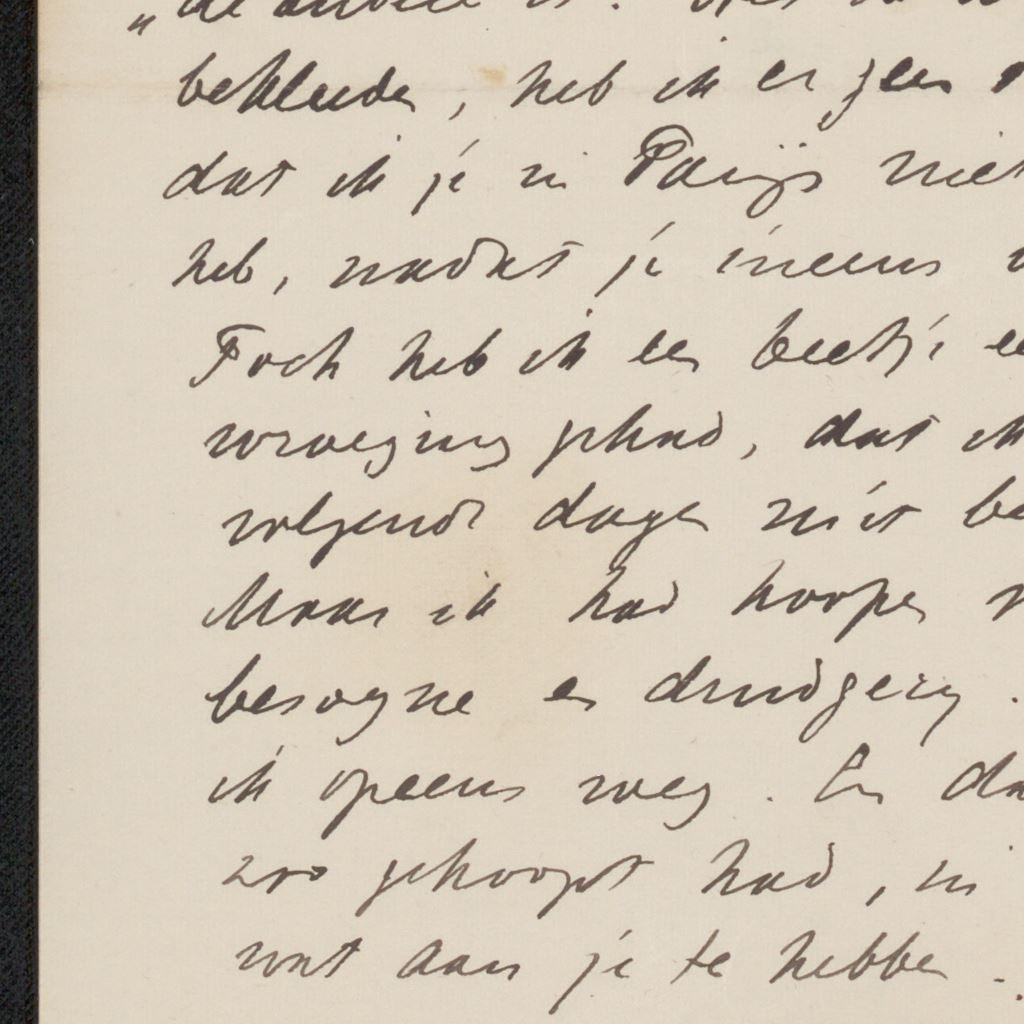 „de andere is.
bekleeden, heb ik er geen
dat ik je in Parijs niet
heb, nadat je ineens
Toch heb ik een beetje
wroeging gehad, dat ik
volgende dagen niet
Maar ik had hoopen
besogne en drudgery.
ik opeens weg. En
zoo gehoopt had, in
wat aan je te hebben.